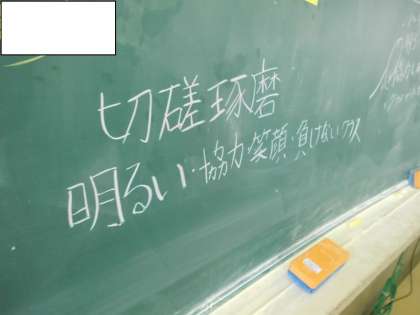 切磋琢磨
明るい・協力・笑顔・負けないクラス